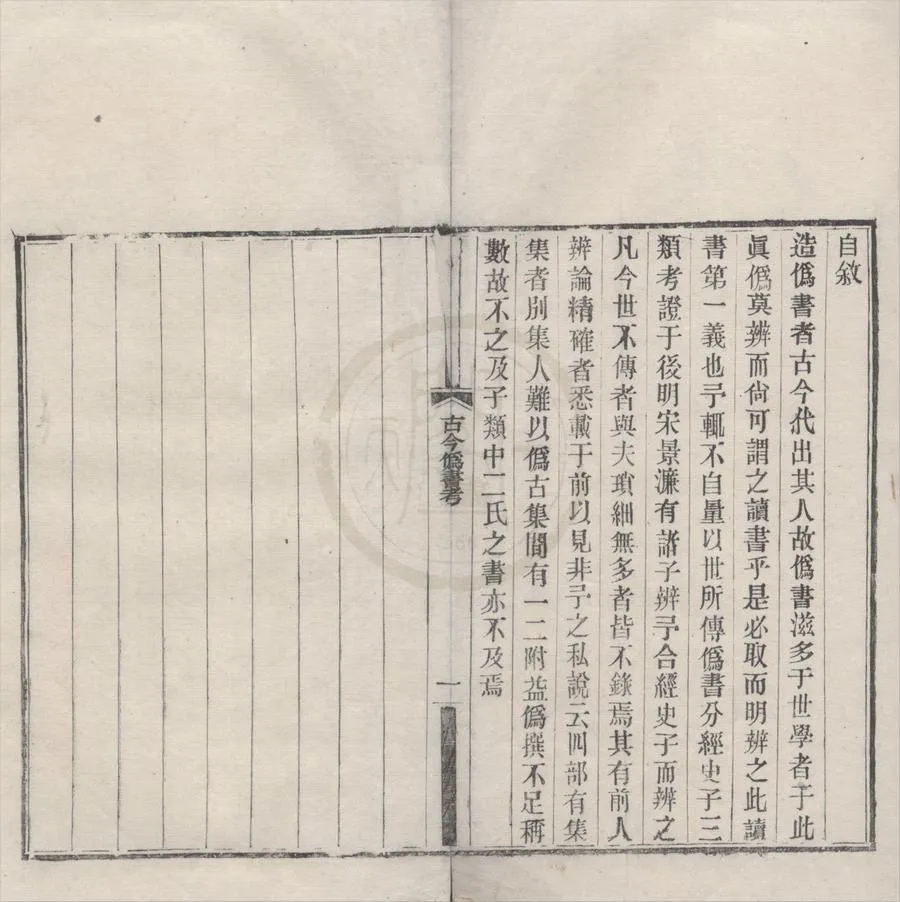 自敘
造僞書者古今代出其人故僞書滋多于世學者于此
眞僞莫辨而尙可謂之讀書乎是必取而明辨之此讀
書第一義也予輒不自量以世所傳僞書分經史子三
類考證于後明宋景濂有諸子辨予合經史子而辨之
凡今世不傳者與夫瑣細無多者皆不錄焉其有前人
辨論精確者悉載于前以見非予之私說云四部有集
集者別集人難以僞古集間有一二附益僞撰不足稱
數故不之及子類中二氏之書亦不及焉
古今僞書考
一